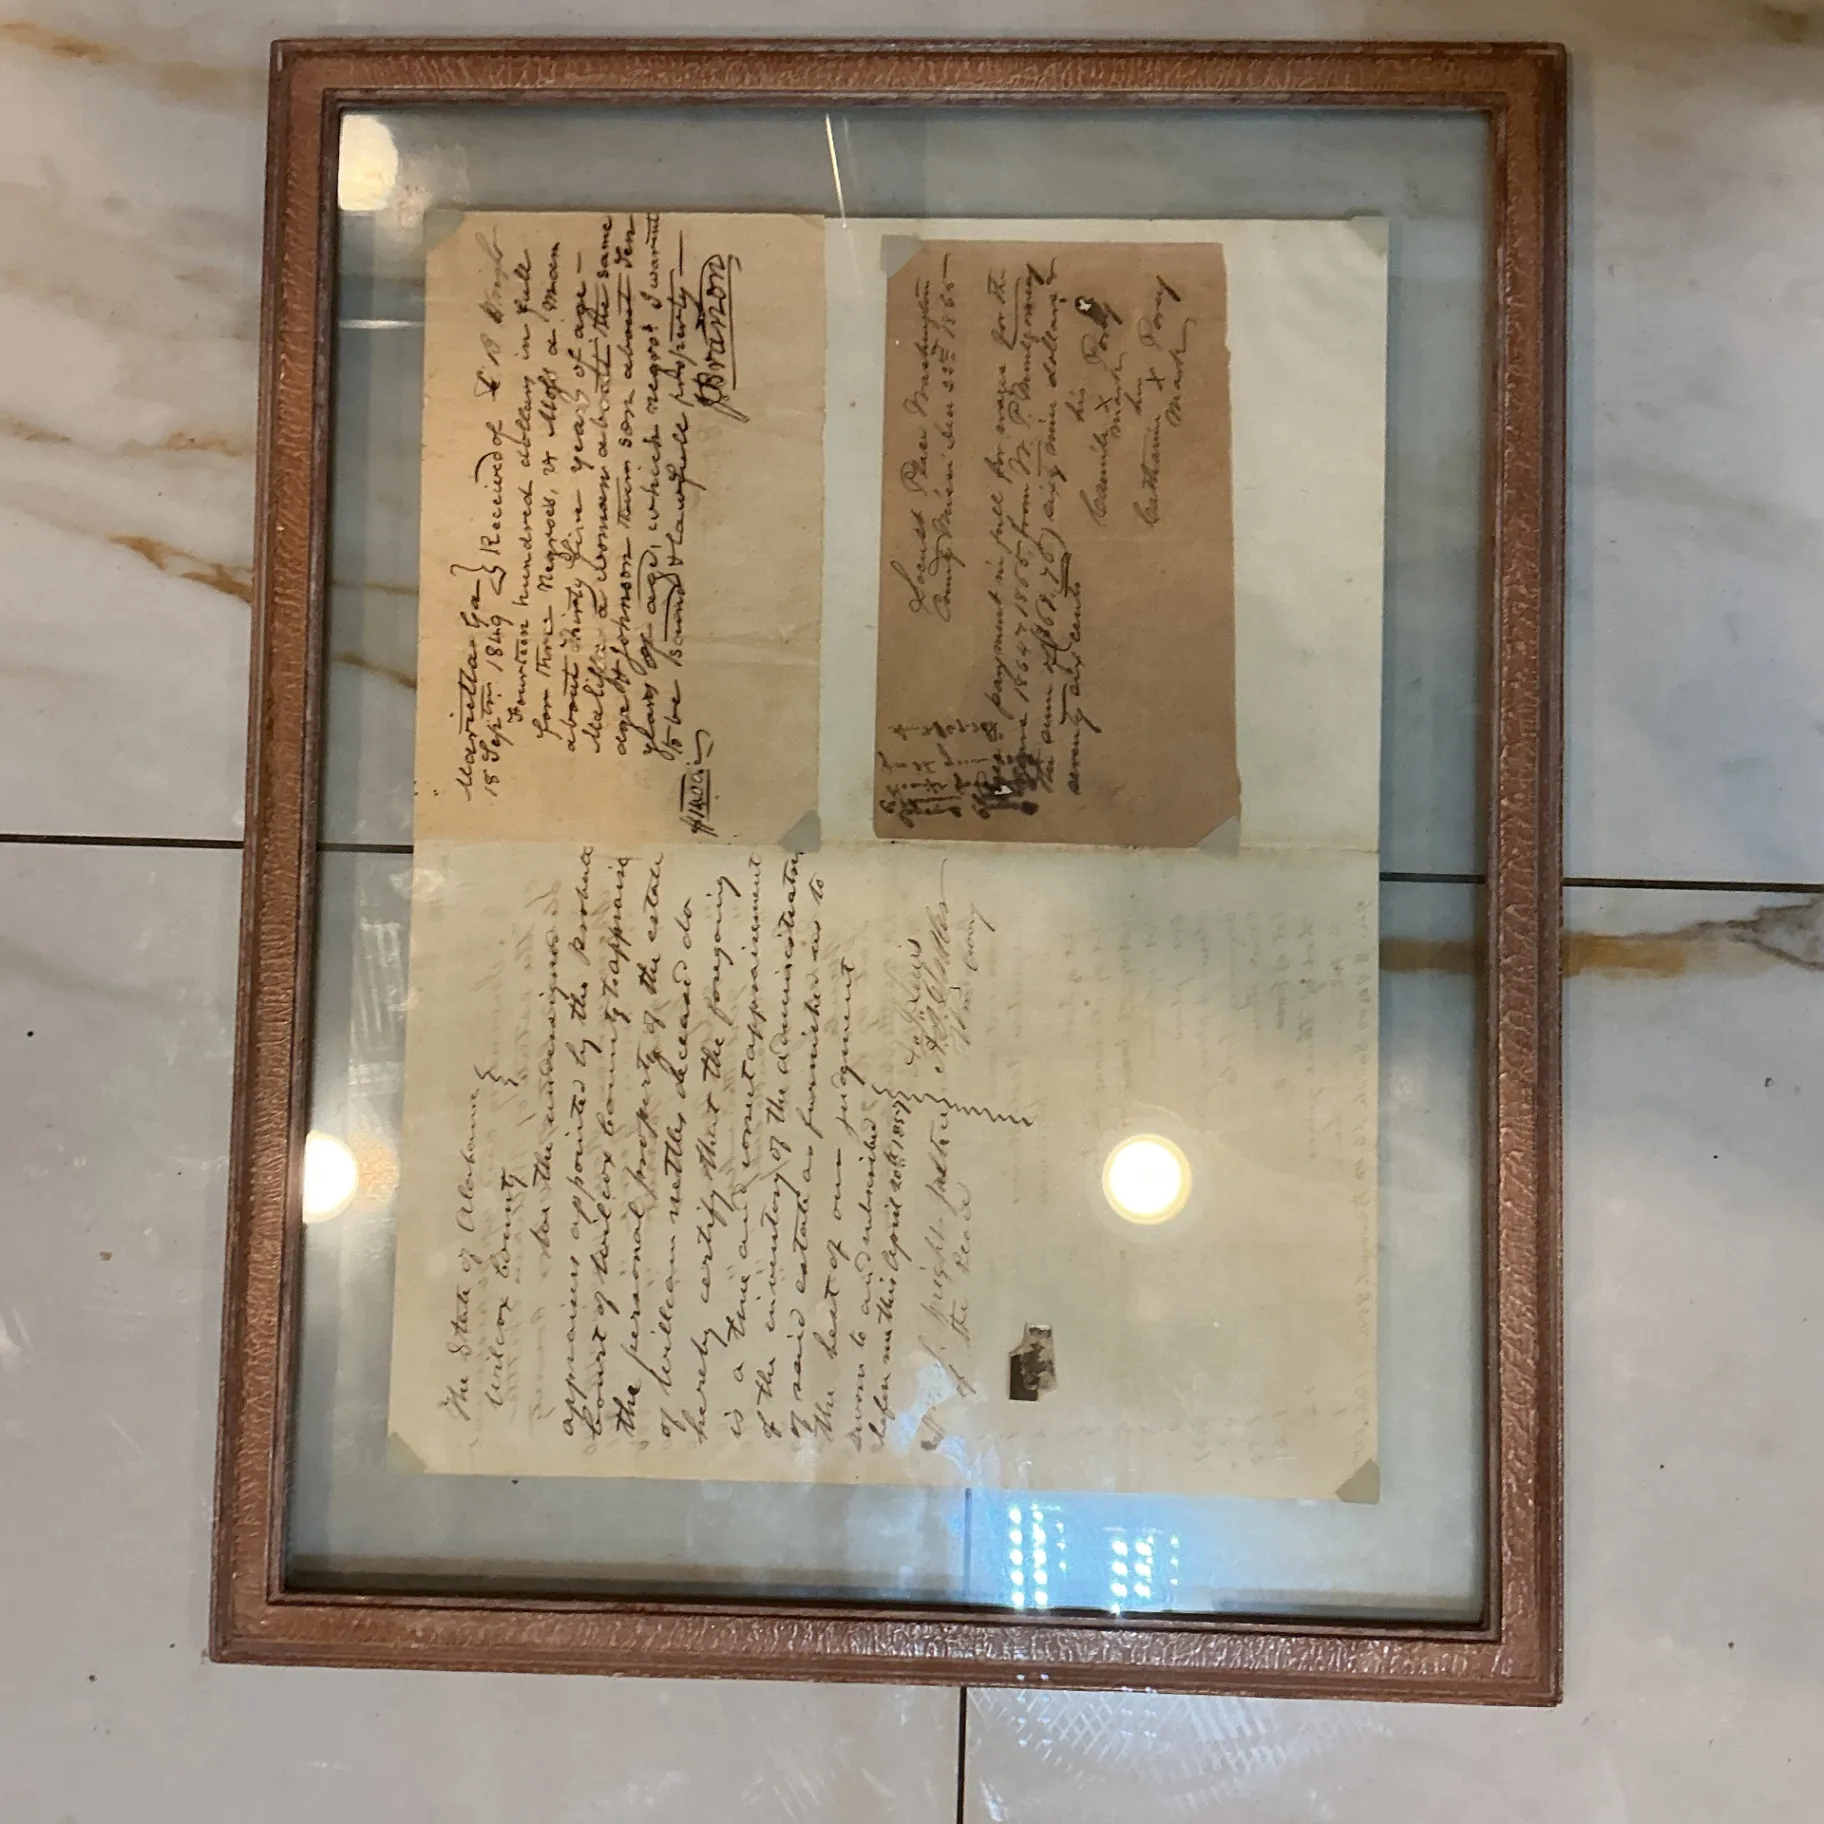 The State of Alabama
Wilcox County
We the undersigned
appraisers appointed by the Probate
Court of Wilcox County to appraise
the personal property of the estate
of William Nettles deceased do
hereby certify that the foregoing
is a true and correct appraisement
of the inventory of the administrator
of said estate as furnished us to
the best of our judgment
Sworn to and subscribed
before me this April 20th 1857
of the Peace
Marietta Ga
18 Septm 1849 Received of
Fourteen hundred dollars in full
for three Negroes, viz Moss a man
about Thirty five years of age –
a woman about the same
age & Johnson their son about Ten
years of age, which negros I warrant
to be sound & lawfull property –
$1400
J Brannon
Locust Place Washington
County Mississ Dec 22nd 1865
payment in full for wages for the
1864 & 1865 from W. P. Montgomery
the sum of (68.76) sixty nine dollars
seventy six cents
his
Camile X Posey
mark
her
Catharine X Posey
Mark